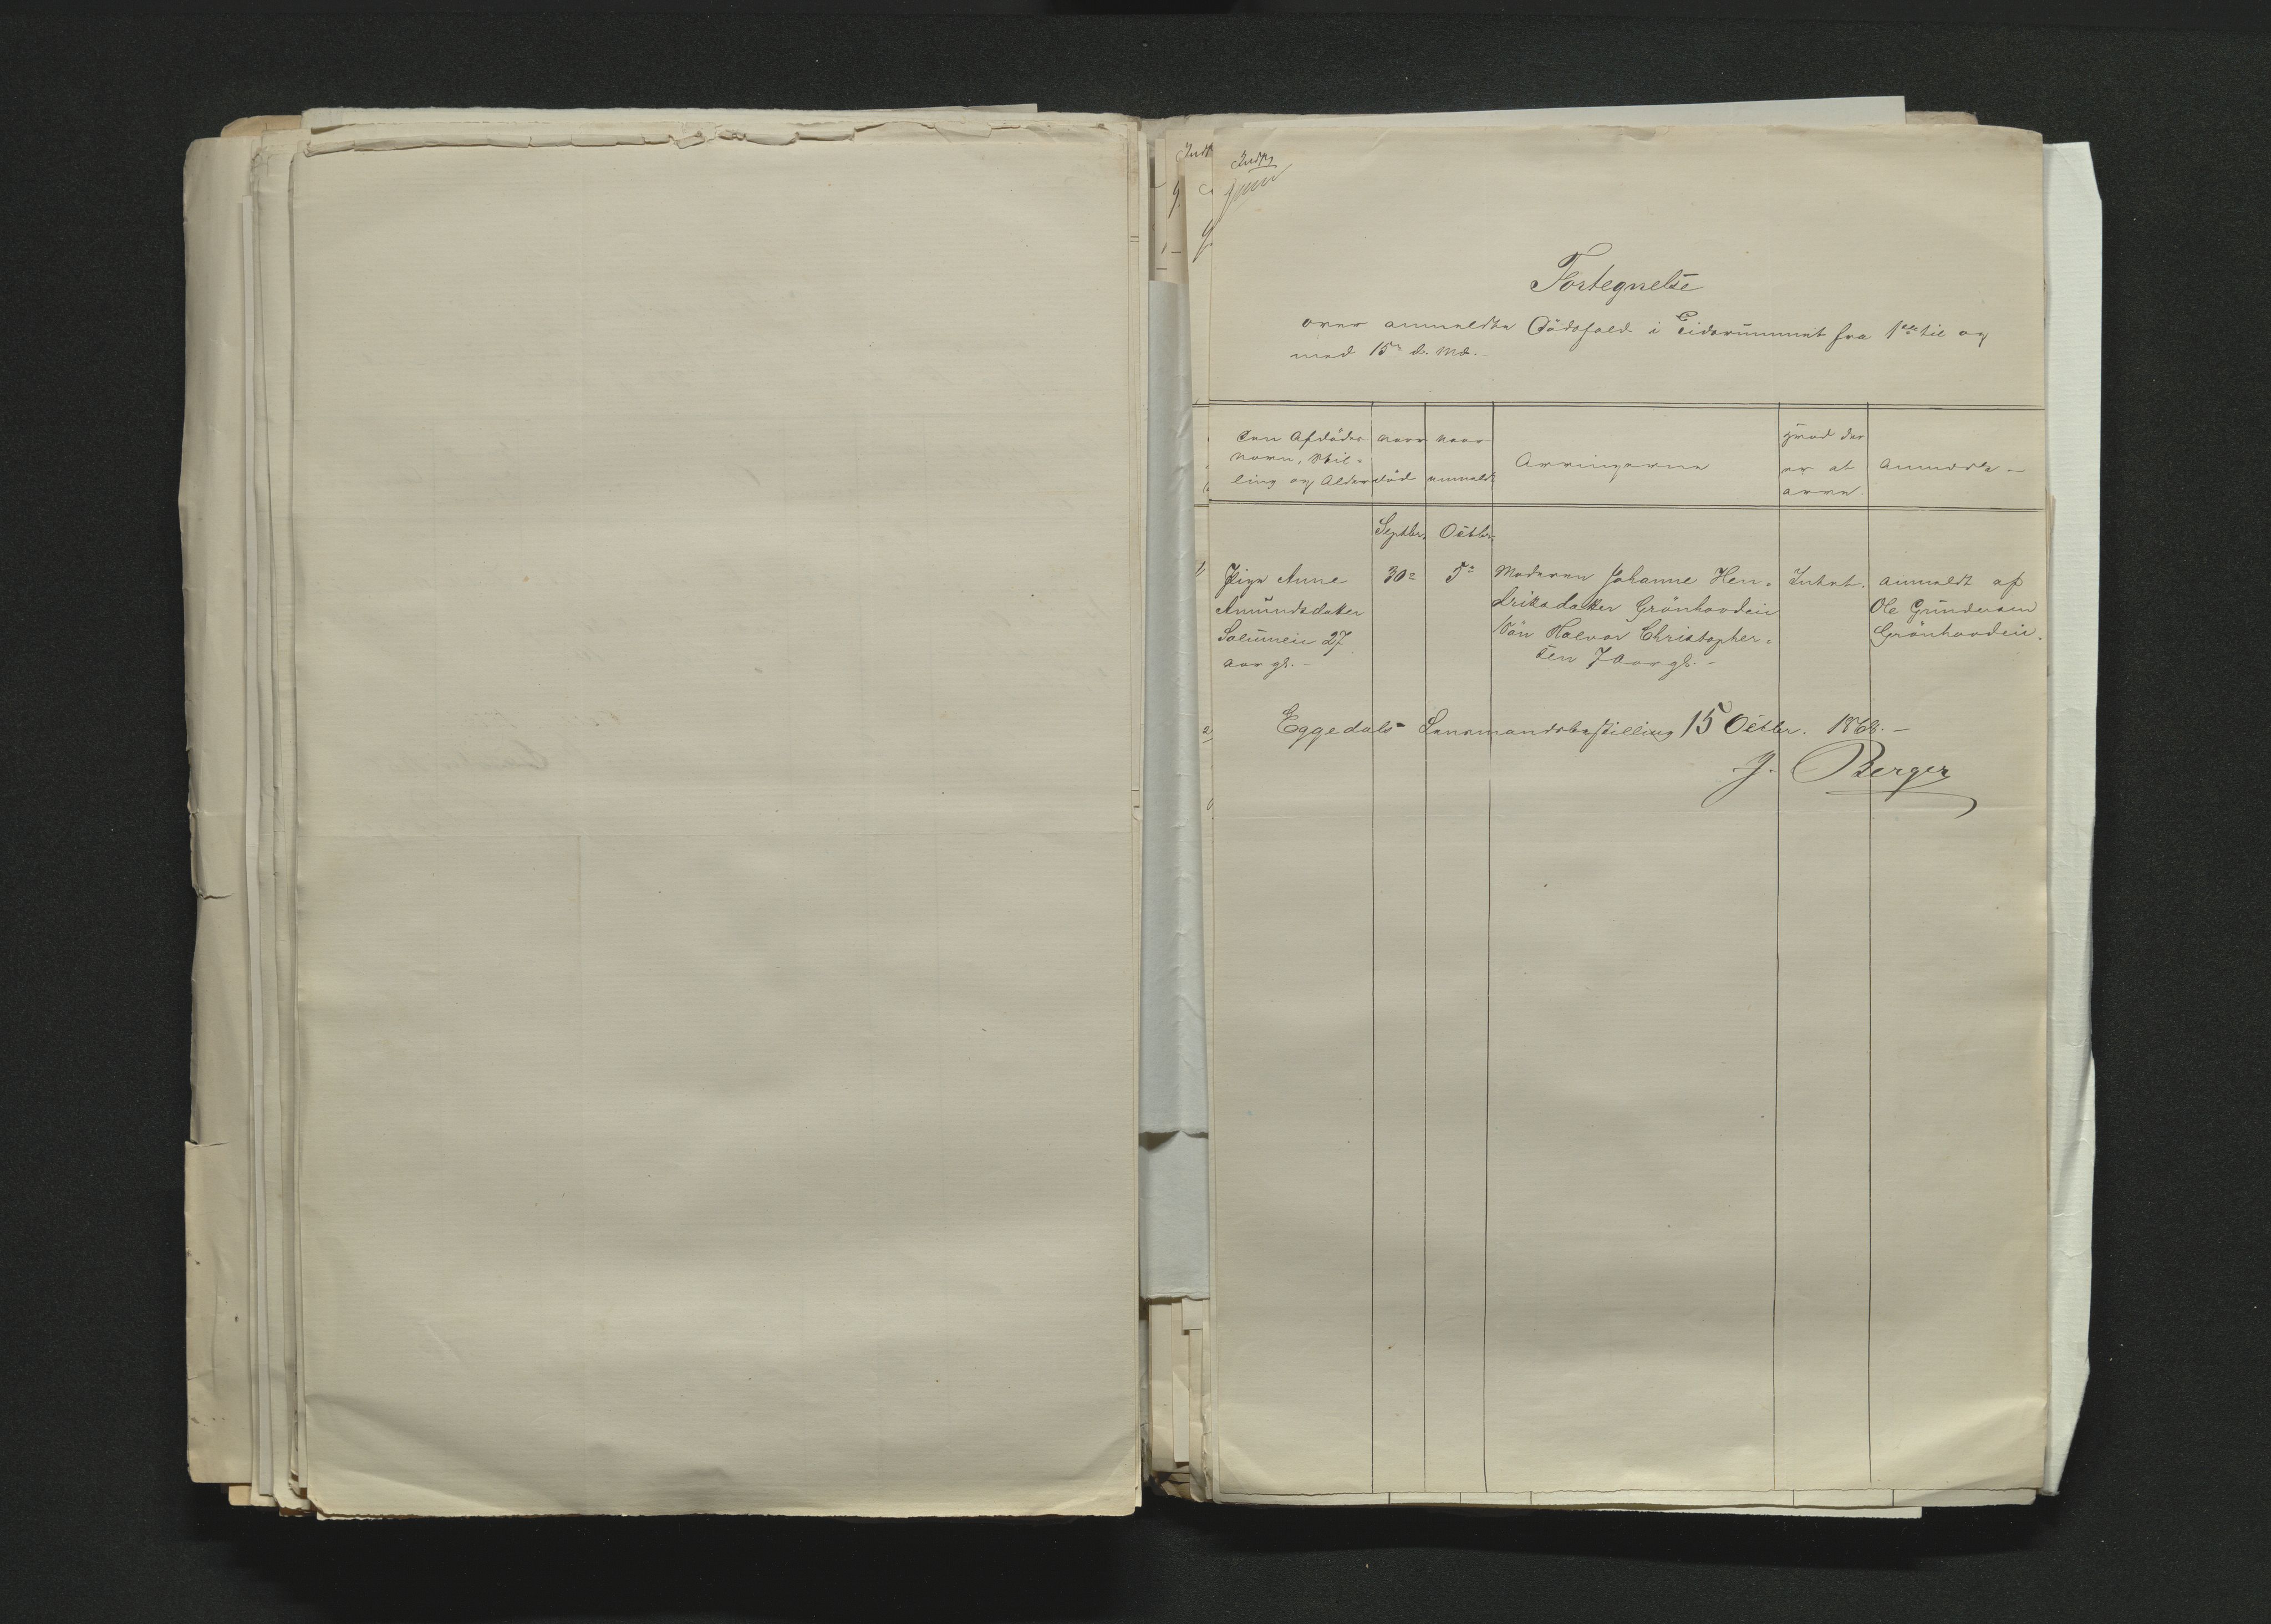 Fortegnelse
over anmeldte Dödsfald i Eidarummet fra 1ste til og
med 15de d. Md. -
Den Afdödes
Navn, Stil-
ling og Alder
naar
död
naar
anmeldt
Arvingerne
Hvad der
er at
arve.
Anmærkn. -
Septbr.
Octbr.
Pige Anne
Amundsdatter
Solumeie 27
Aar gl. -
30te
5te
Moderen Johanne Hen-
driksdatter Grönhovdeie
Sön Halvor Christopher-
sen 7 Aar gl. -
Intet.
anmeldt af
Ole Gundersen
Grönhovdeie.
Eggedals Lensmandsbestilling 15 Octbr. 1868. -
J. Berger